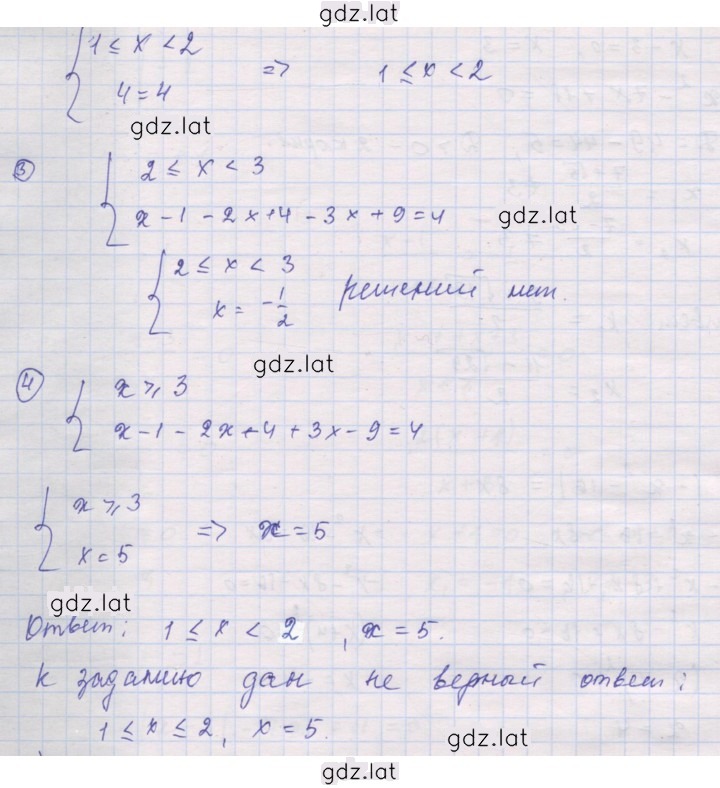 gdz.lat
1 ≤ x < 2
4 = 4
=> 1 ≤ x < 2
gdz.lat
③ 2 ≤ x < 3
x - 1 - 2x + 4 - 3x + 9 = 4
gdz.lat
2 ≤ x < 3
x = - 1/2 решений нет.
gdz.lat
④ x ⩾ 3
x - 1 - 2x + 4 + 3x - 9 = 4
x ⩾ 3
x = 5
=> x = 5
gdz.lat
Ответ: 1 ≤ x < 2, x = 5.
К заданию дан не верный ответ:
1 ≤ x ≤ 2, x = 5.
gdz.lat
gdz.lat